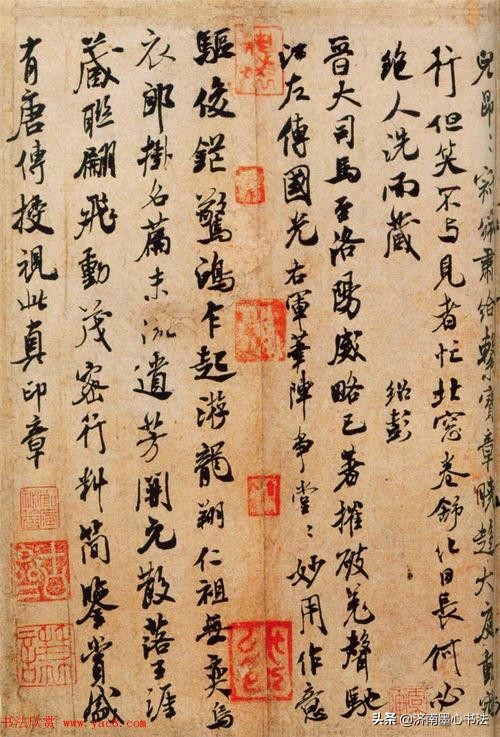 昂、肅給章趙大
行但笑不与見者忙北窓卷舒化日長何必
絕人洗而藏
紹彭
晉大司馬至洛陽威略已著摧破羌聲馳
江左傳國光右軍筆陣爭堂、妙用作意
驅俊鋩驚鴻乍起游龍翔仁祖無奕烏
衣郎掛名篇末流遺芳開元散落天涯
藏聯翩飛動茂密行料简鑒賞盛
有唐傳授視此真印章
书法欣赏 www.yac8.com
头条 @济南墨心书法